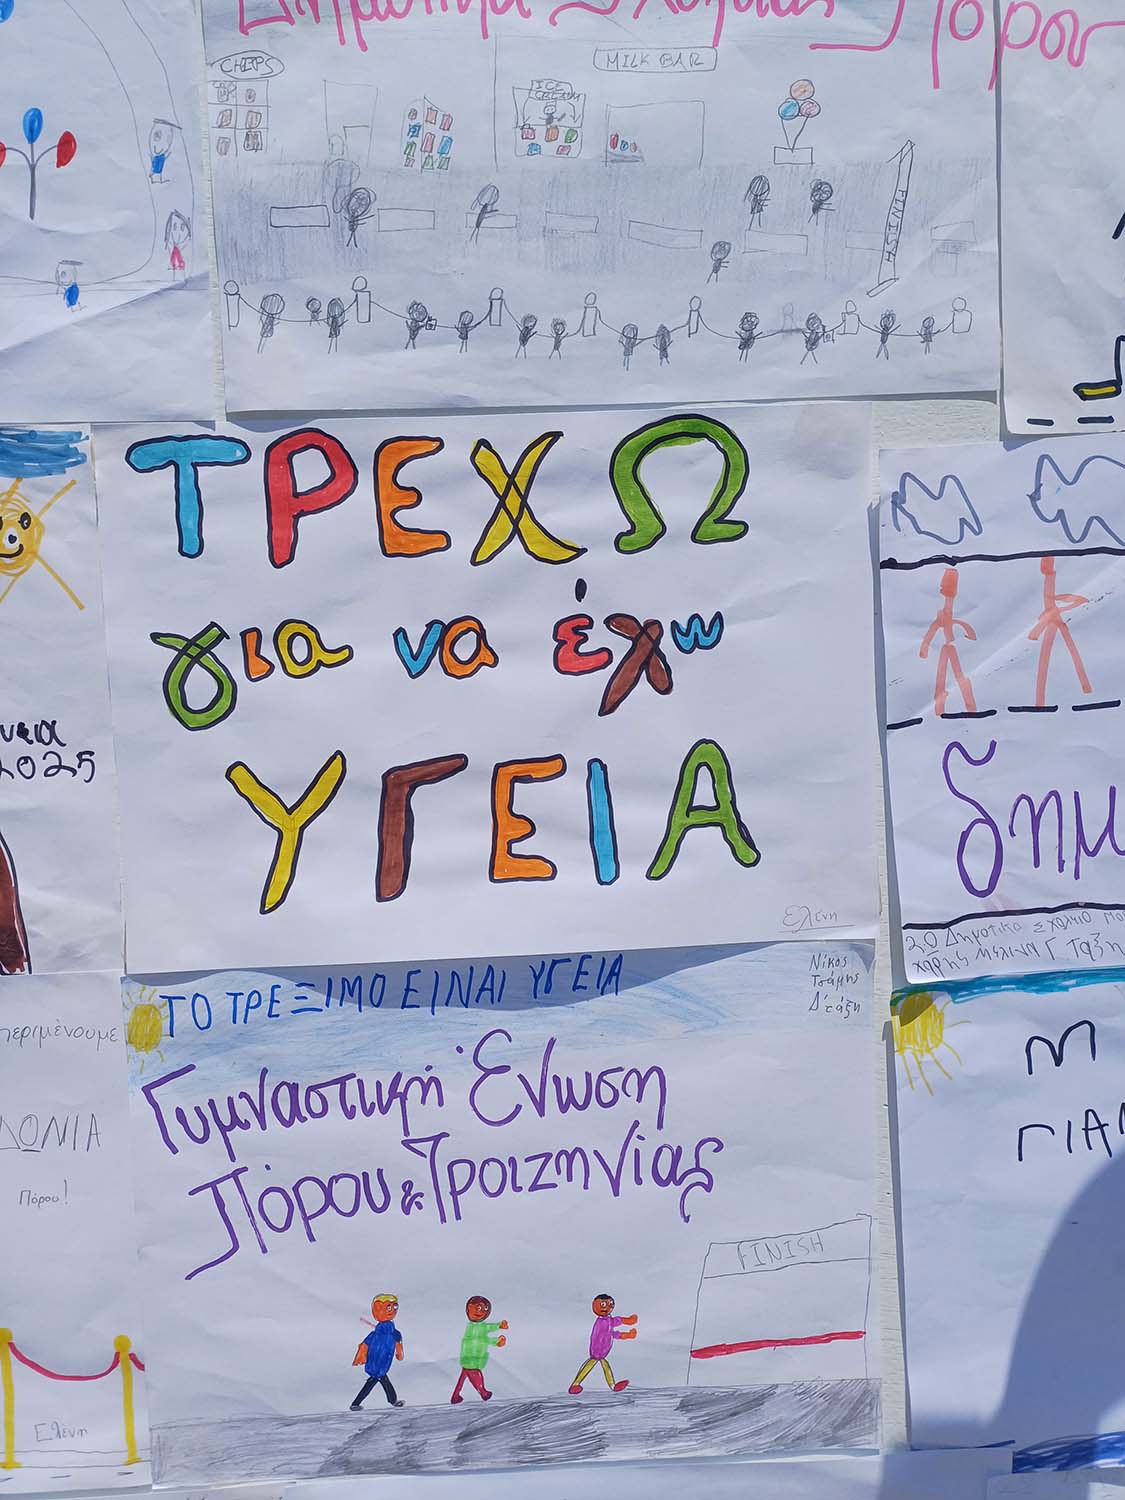 Δημοτικά Σχολεία Πόρου
CHIPS
MILK BAR
ICE
CREAM
FINISH
ΤΡΕΧΩ
για να έχω
ΥΓΕΙΑ
Ελένη
2025
δημ
2ο Δημοτικό σχολείο
Γ Τάξη
ΤΟ ΤΡΕΞΙΜΟ ΕΙΝΑΙ ΥΓΕΙΑ
Νίκος
Τσάμης
Δ' τάξη
Γυμναστική Ένωση
Πόρου & Τροιζηνίας
FINISH
περιμένουμε
ΔΟΝΙΑ
Πόρου!
Ελένη
Μ
ΓΙΑ